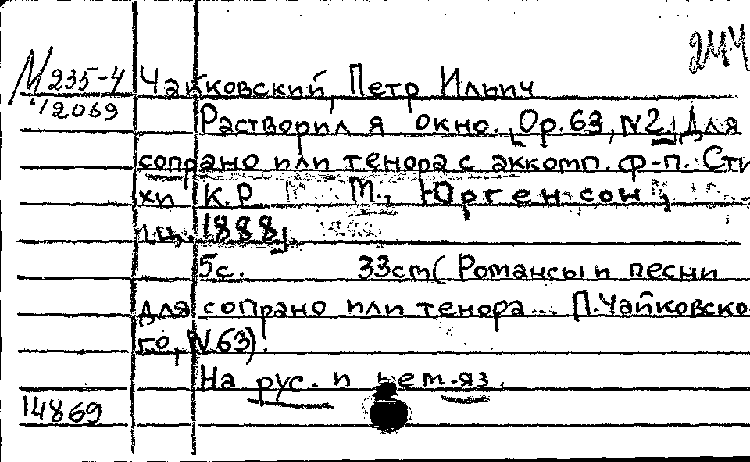 244
М 235-4 Чайковский, Петр Ильич
12069 Растворил я окно. [Op. 63, N2.] Для
сопрано или тенора с аккомп. ф-п. Сти
хи К.Р М., Юргенсон,
1888]
5с. 33cm (Романсы и песни
для сопрано или тенора... П. Чайковско
го, N63)
На рус. и нем. яз.
14869